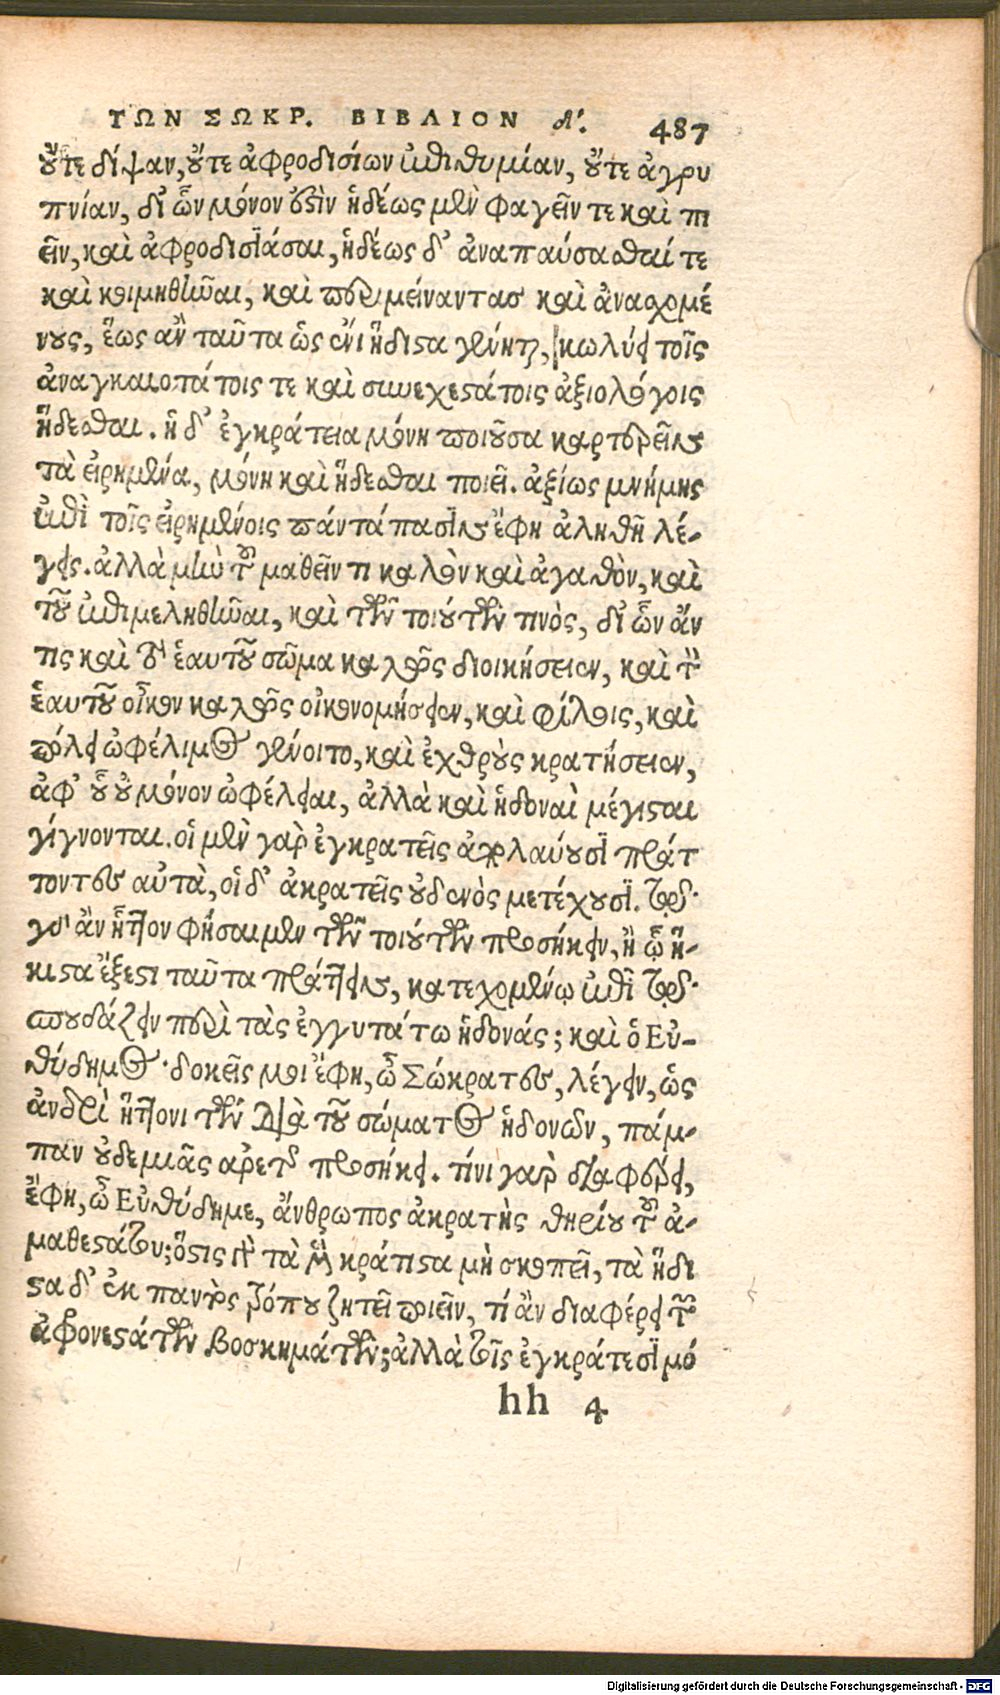 ΤΩΝ ΣΩΚΡ. ΒΙΒΛΙΟΝ δ'. 487
ὔτε δίψαν, ὔτε ἀφροδισίων ἐπιθυμίαν, ὔτε ἀγρυ
πνίαν, δι' ὧν μόνον ἐςὶν ἡδέως μὲν φαγεῖν τε καὶ πι
εῖν, καὶ ἀφροδισϊάσαι, ἡδέως δ' ἀναπαύσαθαί τε
καὶ κοιμηθῆναι, καὶ περιμείναντασ καὶ ἀναχομέ
νους, ἕως ἂν ταῦτα ὡς ἔνι ἥδιςα γένηται, κωλύει τοῖς
ἀναγκαιοτάτοις τε καὶ συνεχεςάτοις ἀξιολόγοις
ἥδεσθαι. ἡ δ' ἐγκράτεια μόνη ποιοῦσα καρτερεῖν
τὰ εἰρημένα, μόνη καὶ ἥδεσθαι ποιεῖ. ἀξίως μνήμης
ἐπὶ τοῖς εἰρημένοις παντάπασϊν ἔφη ἀληθῆ λέ-
γεις. ἀλλὰ μὴν τοῦ μαθεῖν τι καλὸν καὶ ἀγαθὸν, καὶ
τοῦ ἐπιμεληθῆναι, καὶ τῶν τοιούτων τινὸς, δι' ὧν ἄν
τις καὶ τὸ ἑαυτοῦ σῶμα καλῶς διοικήσειεν, καὶ τὸν
ἑαυτοῦ οἶκον καλῶς οἰκονομήσειεν, καὶ φίλοις, καὶ
πόλει ὠφέλιμος γένοιτο, καὶ ἐχθροὺς κρατήσειεν,
ἀφ' ὧ οὐ μόνον ὠφέλειαι, ἀλλὰ καὶ ἡδοναὶ μέγιςαι
γίγνονται. οἱ μὲν γὰρ ἐγκρατεῖς ἀπολαύουσϊ πράτ
τοντες αὐτὰ, οἱ δ' ἀκρατεῖς οὐδενὸς μετέχουσϊ. τῷ
γὰρ ἂν ἧττον φήσαιμεν τῶν τοιούτων προσήκειν, ἢ ᾧ ἥ-
κιςα ἔξεςι ταῦτα πράττειν, κατεχομένῳ ἐπὶ τῷ
σπουδάζειν περὶ τὰς ἐγγυτάτω ἡδονάς; καὶ ὁ Εὐ-
θύδημος· δοκεῖς μοι ἔφη, ὦ Σώκρατες, λέγειν, ὡς
ἀνδρὶ ἥττονι τῶν διὰ τοῦ σώματος ἡδονῶν, πάμ-
παν οὐδεμιᾶς ἀρετῆς προσήκει. τίνι γὰρ διαφέρει,
ἔφη, ὦ Εὐθύδημε, ἄνθρωπος ἀκρατὴς θηρίου τοῦ ἀ-
μαθεςάτου; ὅςις γὰρ τὰ μὲν κράτιςα μὴ σκοπεῖ, τὰ ἥδι
ςα δ' ἐκ παντὸς τρόπου ζητεῖ ποιεῖν, τί ἂν διαφέροι τῶν
ἀφρονεςάτων βοσκημάτων; ἀλλὰ τοῖς ἐγκράτεσϊ μό
hh 4
Digitalisierung gefördert durch die Deutsche Forschungsgemeinschaft - DFG